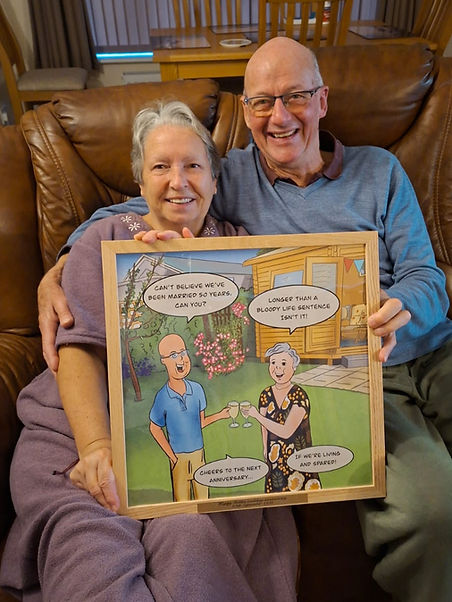 CAN'T BELIEVE WE'VE
BEEN MARRIED 50 YEARS,
CAN YOU?
LONGER THAN A
BLOODY LIFE SENTENCE
ISN'T IT!
CHEERS TO THE NEXT
ANNIVERSARY...
IF WE'RE LIVING
AND SPARED!